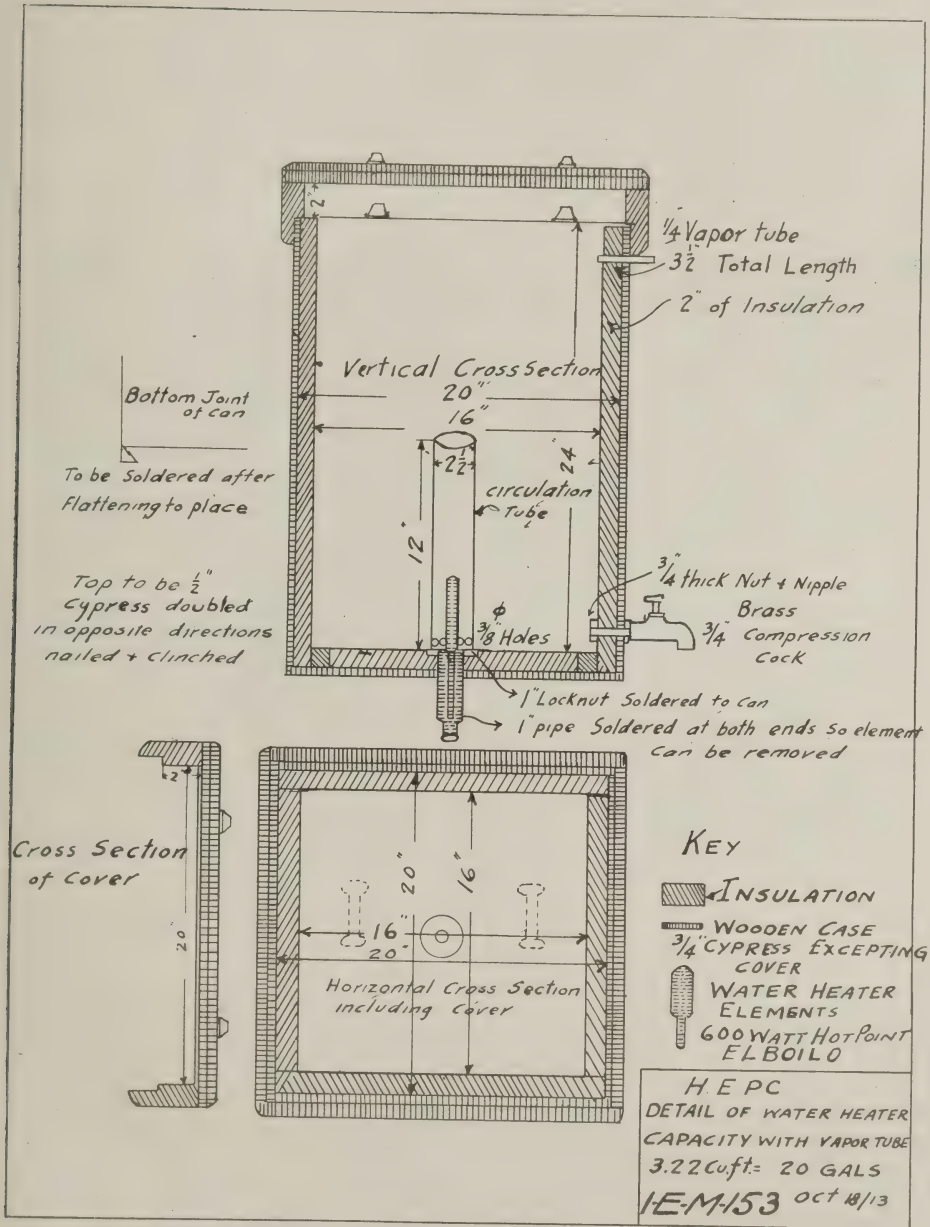 2"
1/4" Vapor tube
3 1/2" Total Length
2" of Insulation
Vertical Cross Section
20"
16"
Bottom Joint
of can
To be Soldered after
Flattening to place
2 1/2"
24"
circulation
Tube
12"
Top to be 1/2"
Cypress doubled
in opposite directions
nailed + clinched
φ
3/8" Holes
3/4" thick Nut + Nipple
Brass
3/4" Compression
Cock
1" Locknut Soldered to Can
1" pipe Soldered at both ends so element
Can be removed
2"
Cross Section
of Cover
20"
20"
16"
16"
20"
Horizontal Cross Section
including Cover
KEY
INSULATION
WOODEN CASE
3/4" CYPRESS EXCEPTING
COVER
WATER HEATER
ELEMENTS
600 WATT HOTPOINT
ELBOILO
H.E PC
DETAIL OF WATER HEATER
CAPACITY WITH VAPOR TUBE
3.22 Cu.ft.= 20 GALS
1-E-M-153 Oct 18/13